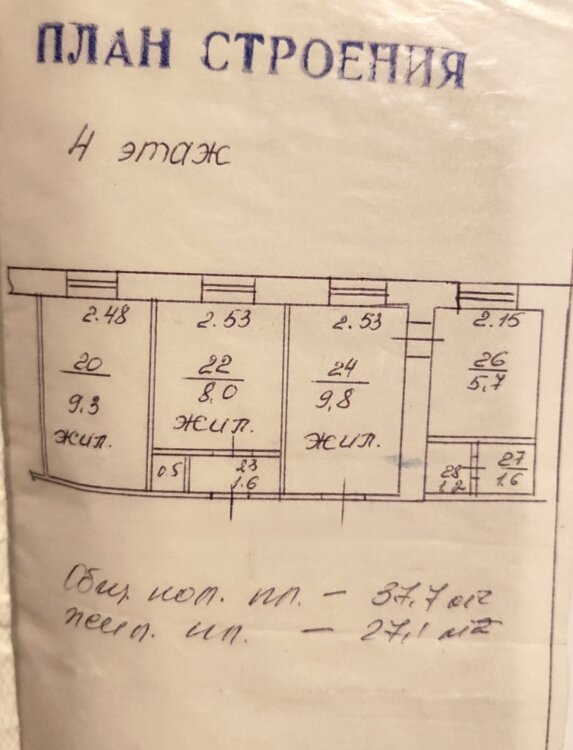 ПЛАН СТРОЕНИЯ
4 этаж
2.48
2.53
2.53
2.15
20
9.3
жил.
22
8.0
жил.
24
9.8
жил.
26
5.7
0.5
23
1.6
28
1.2
27
1.6
Общ. пол. пл. – 37,7 м2
жил. пл. – 27,1 м2